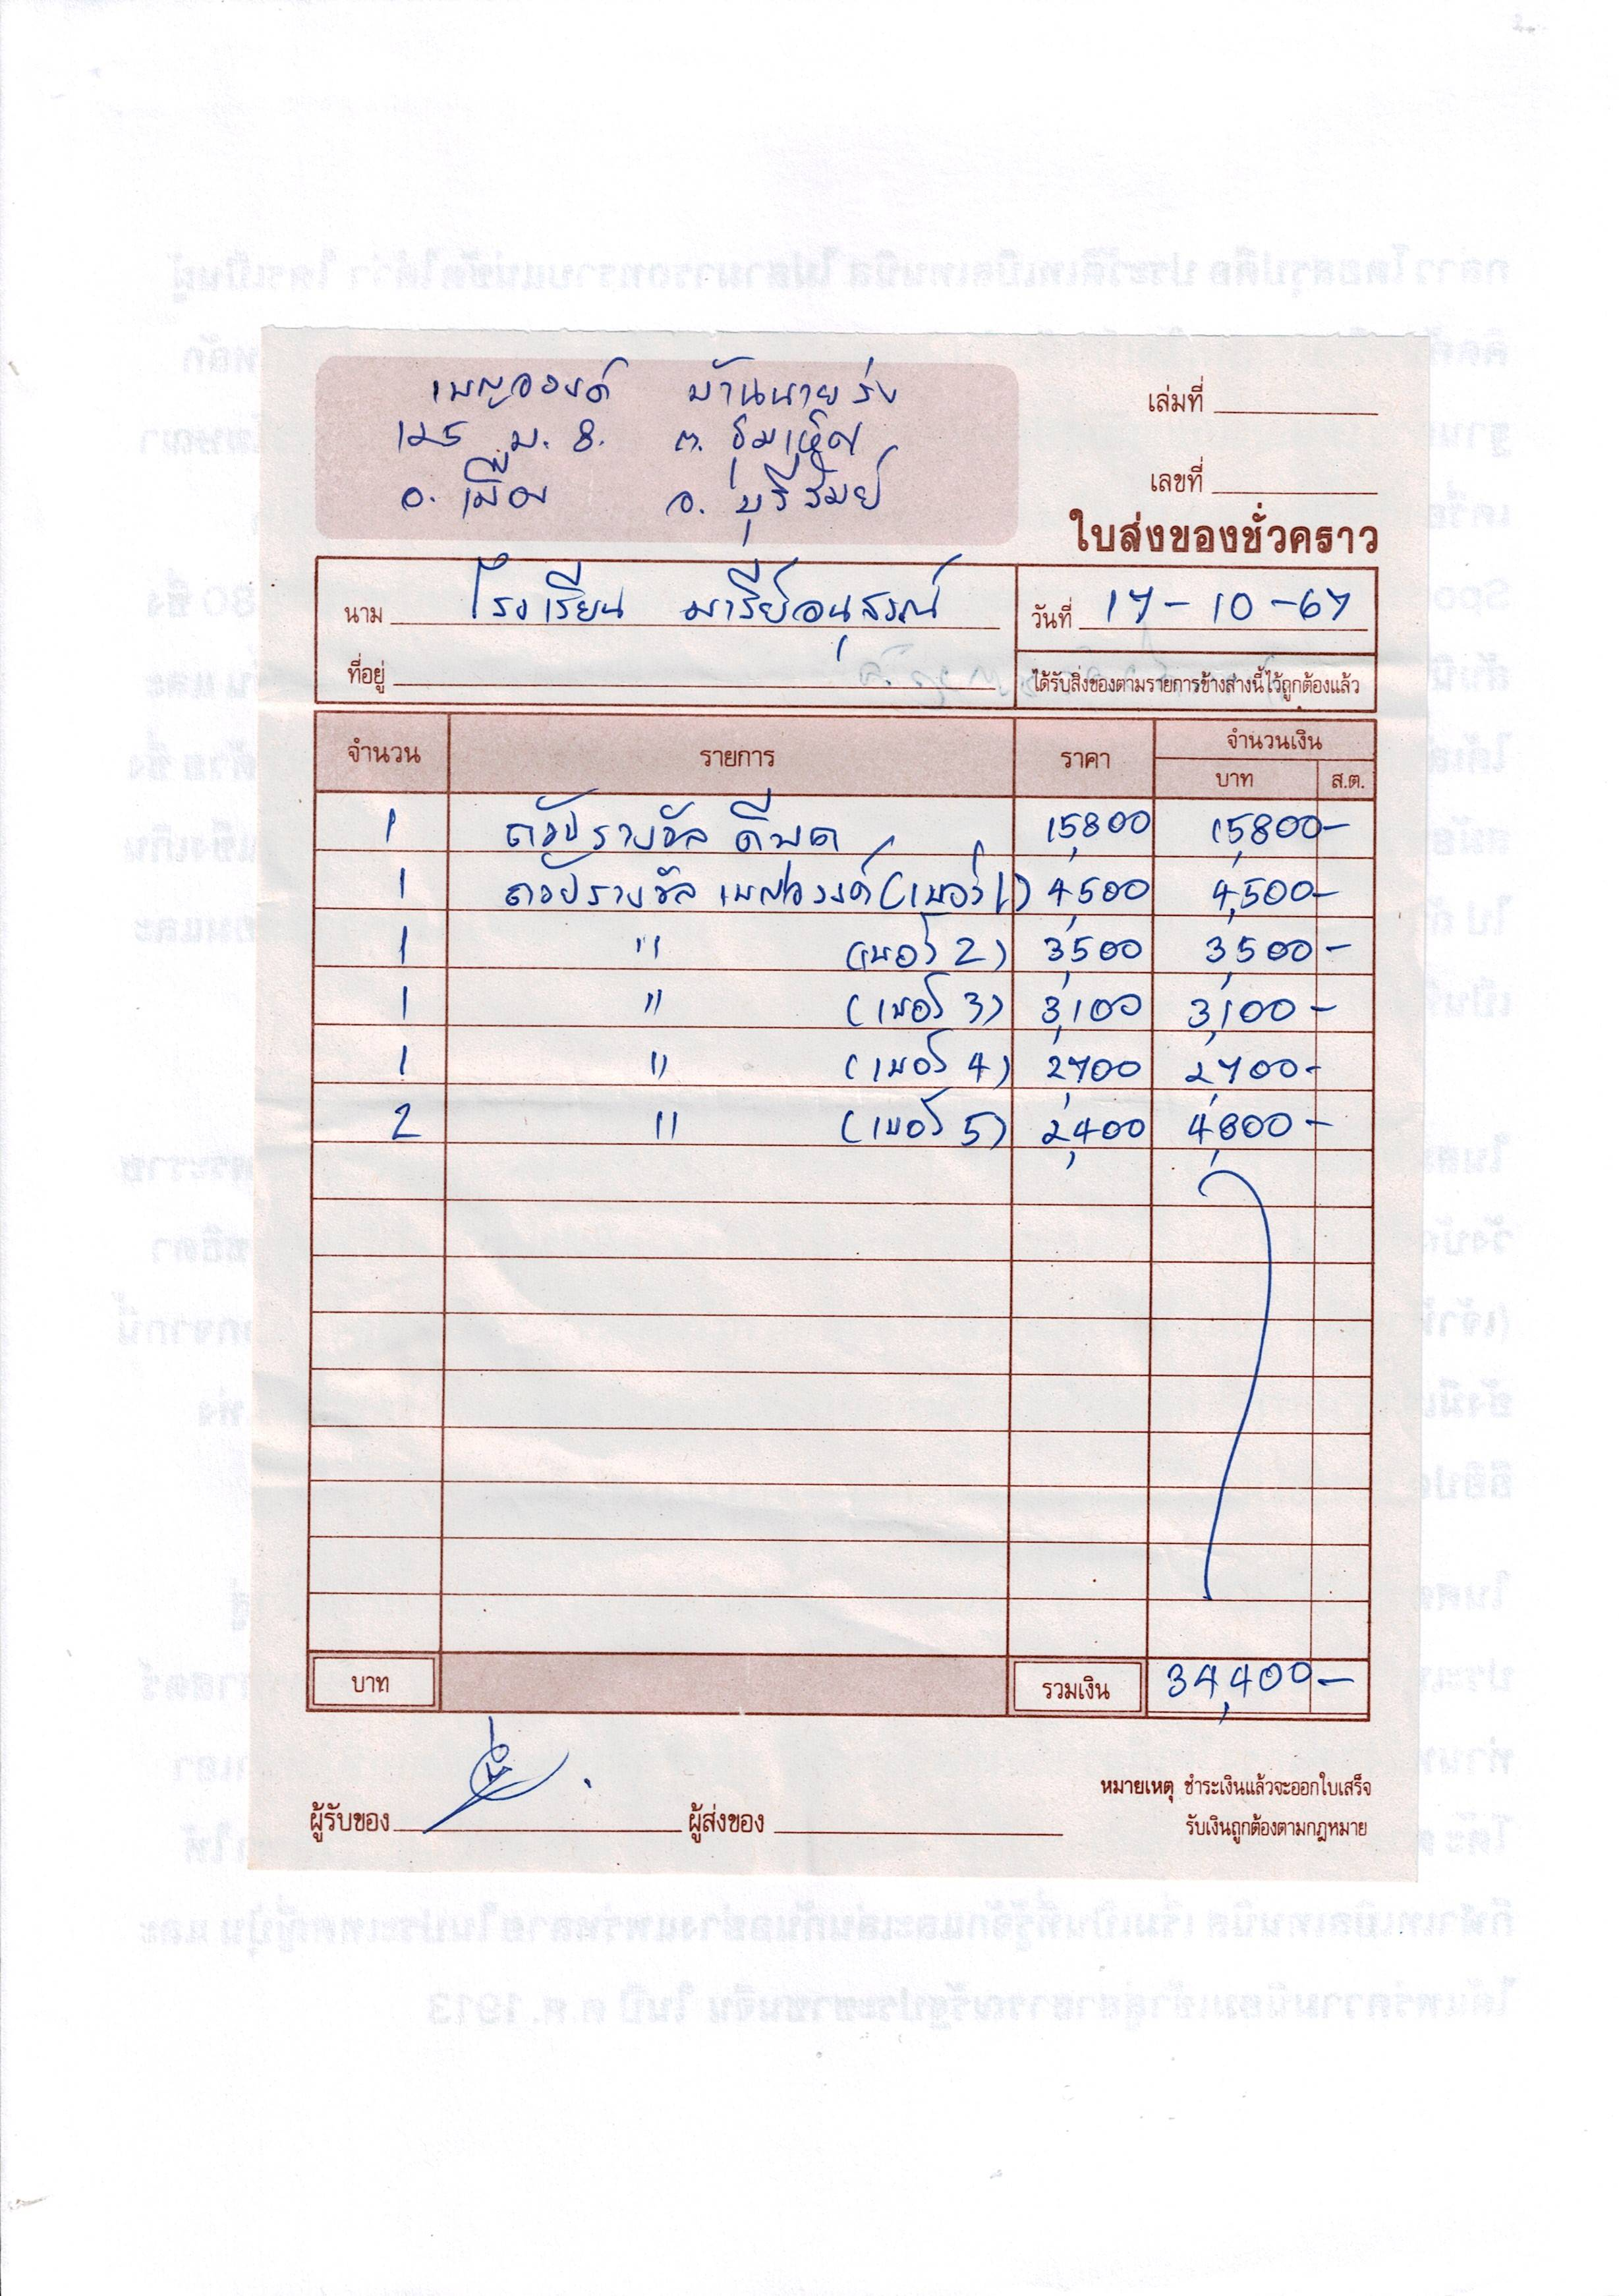 เบญจองค์ บ้านนายรุ่ง
125 ม. 8. ต. ชุมเห็ด
อ. เมือง จ. บุรีรัมย์
เล่มที่
เลขที่
ใบส่งของชั่วคราว
นาม โรงเรียน มารีย์อนุสรณ์
วันที่ 17-10-67
ที่อยู่
ได้รับสิ่งของตามรายการข้างล่างนี้ไว้ถูกต้องแล้ว
จำนวน รายการ ราคา จำนวนเงิน
บาท ส.ต.
1 ถ้วยรางวัล 15,800 15,800-
1 ถ้วยรางวัล (เบอร์ 1) 4,500 4,500-
1 " (เบอร์ 2) 3,500 3,500-
1 " (เบอร์ 3) 3,100 3,100-
1 " (เบอร์ 4) 2,700 2,700-
2 " (เบอร์ 5) 2,400 4,800-
บาท รวมเงิน 34,400-
ผู้รับของ ผู้ส่งของ
หมายเหตุ ชำระเงินแล้วจะออกใบเสร็จ
รับเงินถูกต้องตามกฎหมาย